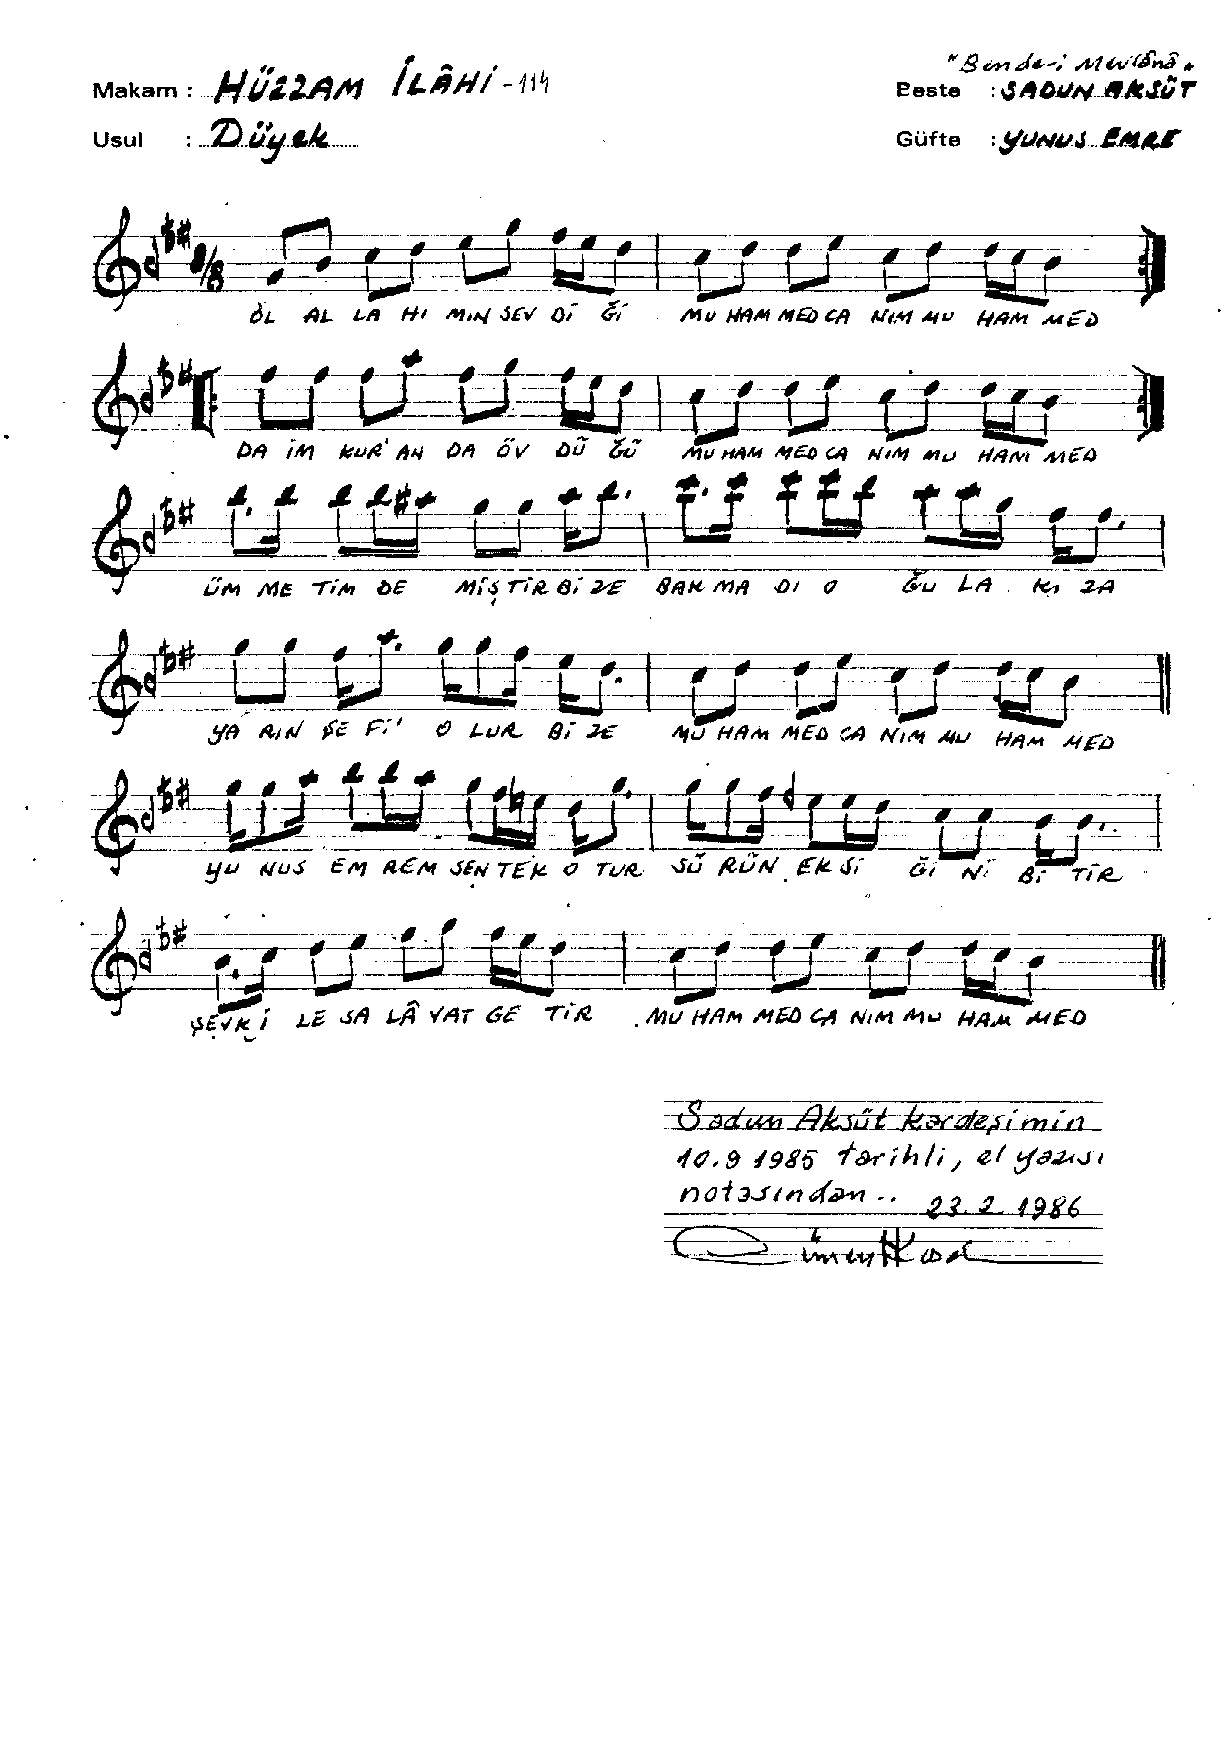 "Bende-i Mevlânâ"
Makam : HÜZZAM İLÂHİ - 114 Beste : SADUN AKSÜT
Usul : Düyek Güfte : YUNUS EMRE
8/8
OL AL LA HI MIN SEV Dİ Ğİ MU HAM MED CA NIM MU HAM MED
DA İM KUR'AN DA ÖV DÜ ĞÜ MU HAM MED CA NIM MU HAM MED
ÜM ME TİM DE MİŞ TİR Bİ ZE BAK MA DI O ĞU LA KI ZA
YA RIN ŞE Fİ' O LUR Bİ ZE MU HAM MED CA NIM MU HAM MED
YU NUS EM REM SEN TEK O TUR SÜ RÜN EK Sİ Ğİ Nİ Bİ TİR
ŞEVK İ LE SA LÂ VAT GE TİR MU HAM MED CA NIM MU HAM MED
Sadun Aksüt kardeşimin
10.9 1985 tarihli, el yazısı
notasından..
23.2.1986